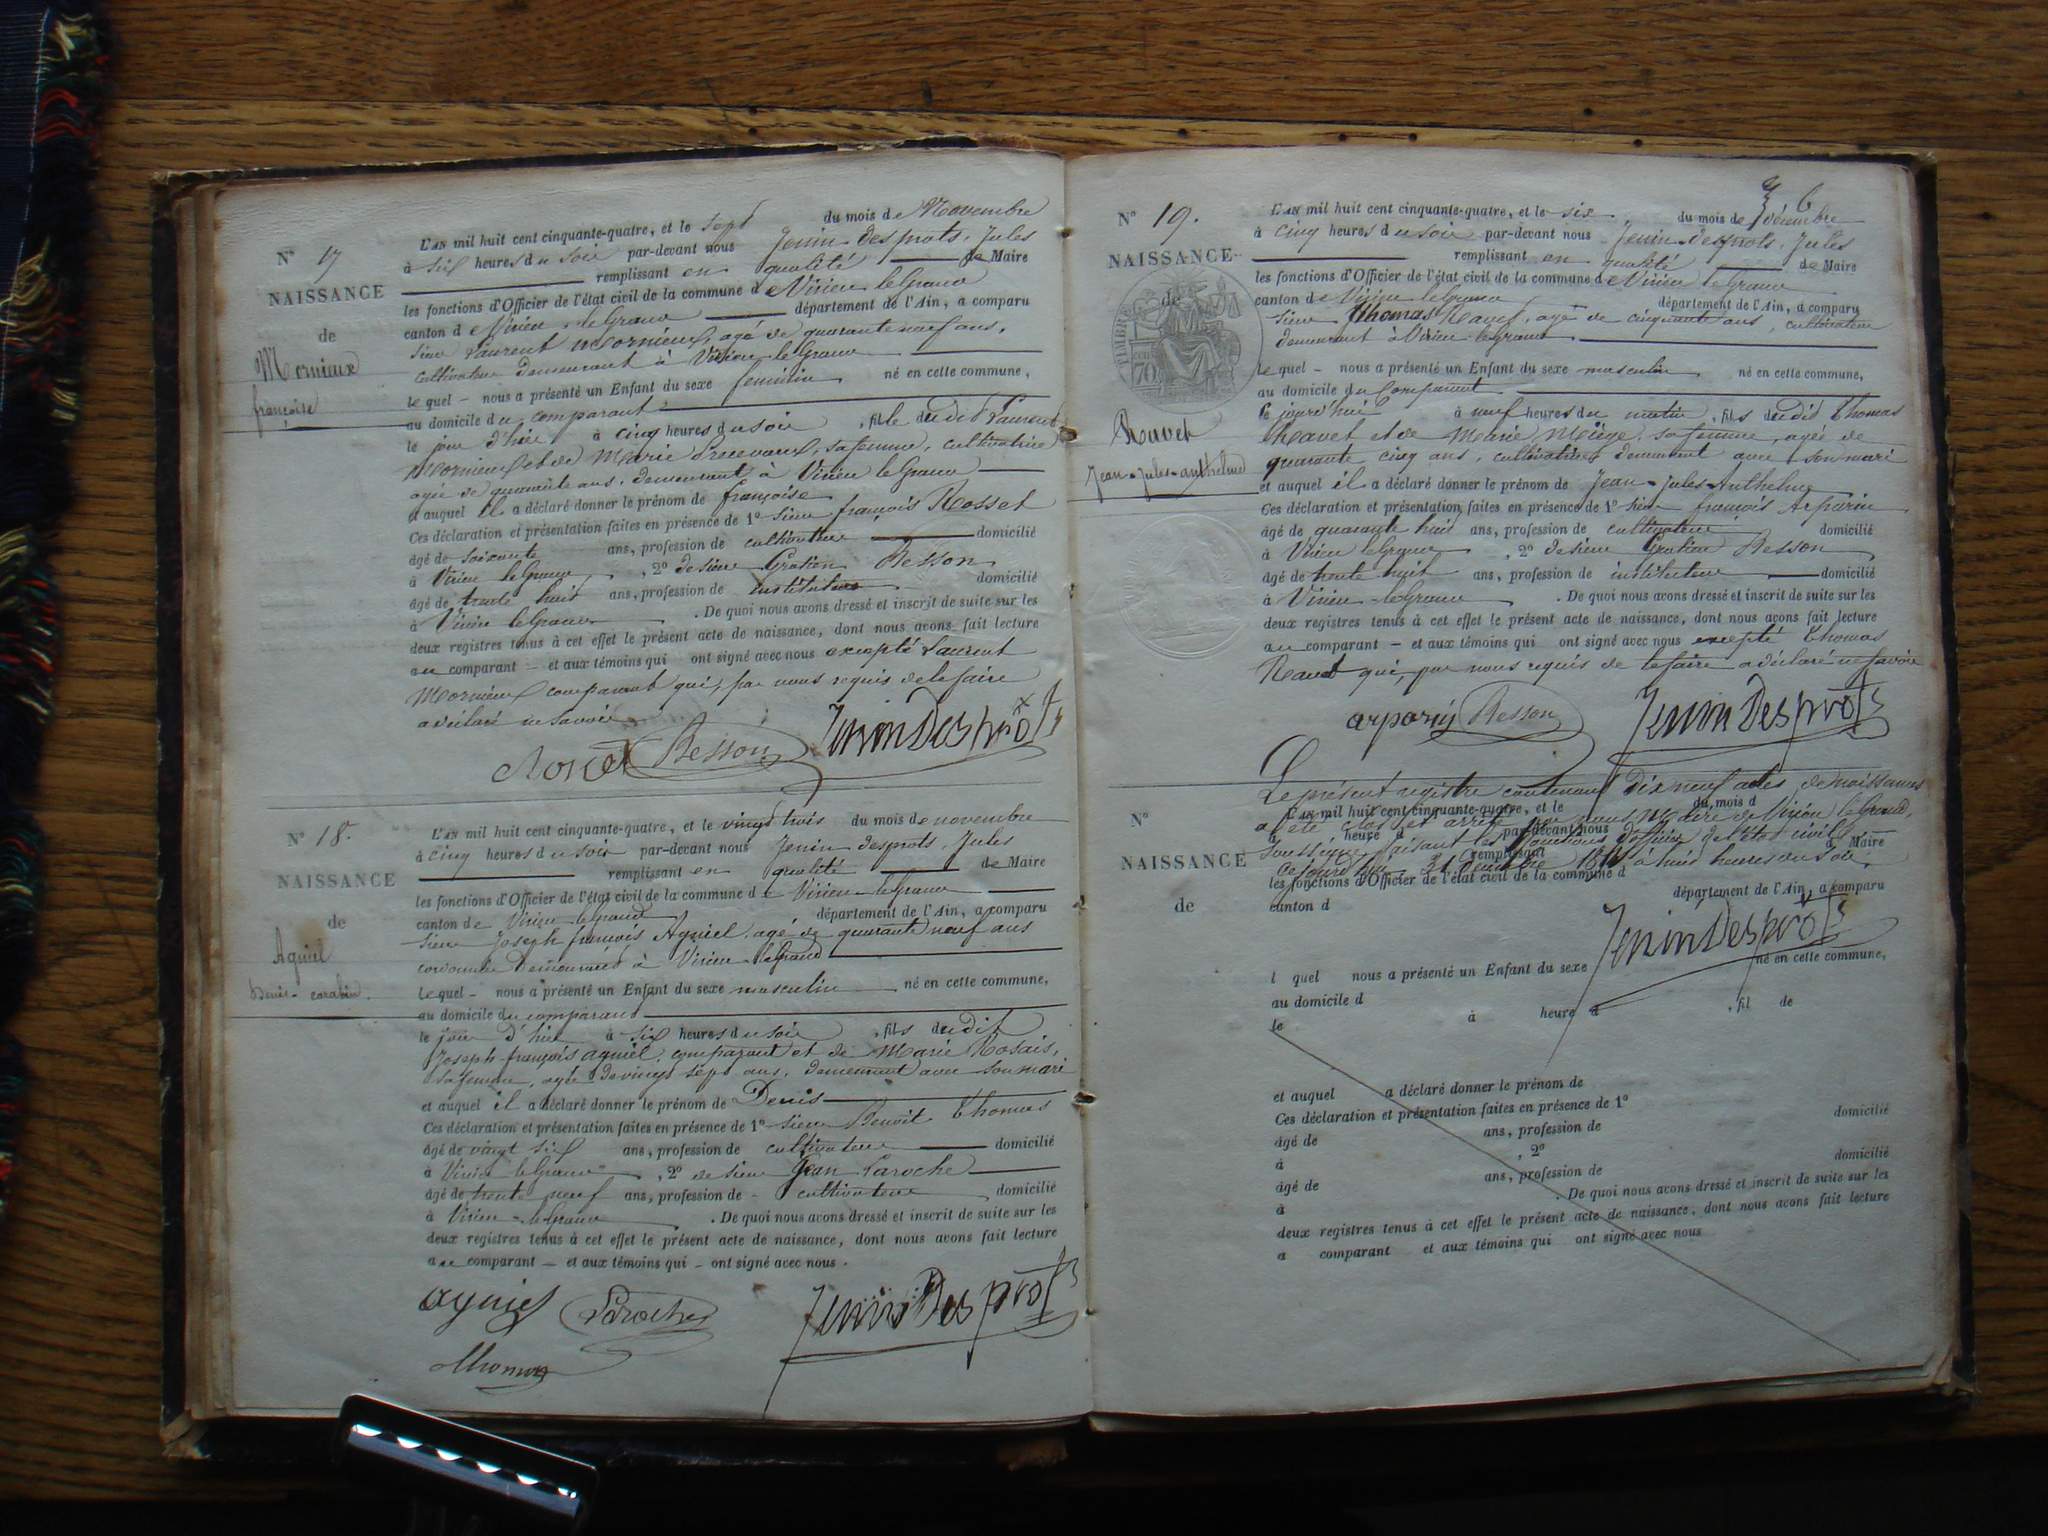 N° 17
NAISSANCE
de
Mornieux
françoise
L'AN mil huit cent cinquante-quatre, et le sept du mois de Novembre
à six heures du soir par-devant nous Jenin-desprots, Jules
remplissant en qualité de Maire
les fonctions d'Officier de l'état civil de la commune de Virieu leGrand
canton de Virieu-leGrand département de l'Ain, a comparu
sieur Laurent Mornieux, agé de quarante neuf ans,
cultivateur demeurant à Virieu-leGrand
lequel nous a présenté un Enfant du sexe feminin né en cette commune,
au domicile du comparant
le jour d'hier à cinq heures du soir, fille dudit Laurent
Mornieux et de Marie, sa femme, cultivatrice
agée de quarante ans, demeurant à Virieu leGrand
et auquel il a déclaré donner le prénom de françoise
Ces déclaration et présentation faites en présence de 1° sieur françois Rosset
âgé de soixante ans, profession de cultivateur domicilié
à Virieu leGrand, 2° de sieur Gratien Besson
âgé de trente huit ans, profession de instituteur domicilié
à Virieu leGrand. De quoi nous avons dressé et inscrit de suite sur les
deux registres tenus à cet effet le présent acte de naissance, dont nous avons fait lecture
au comparant et aux témoins qui ont signé avec nous excepté Laurent
Mornieux comparant qui, par nous requis de le faire
a déclaré ne savoir
Rosset Besson JeninDesprots
N° 18.
NAISSANCE
de
Aguiel
Denis
L'AN mil huit cent cinquante-quatre, et le vingt trois du mois de novembre
à cinq heures du soir par-devant nous Jenin desprots, Jules
remplissant en qualité de Maire
les fonctions d'Officier de l'état civil de la commune de Virieu-leGrand
canton de Virieu-leGrand département de l'Ain, a comparu
sieur Joseph françois Aguiel, agé de quarante neuf ans
cordonnier demeurant à Virieu-leGrand
lequel nous a présenté un Enfant du sexe masculin né en cette commune,
au domicile du comparant
le jour d'hier à six heures du soir, fils dudit
Joseph-françois aguiel, comparant et de Marie Rosais,
sa femme, agée de vingt sept ans, demeurant avec son mari
et auquel il a déclaré donner le prénom de Denis
Ces déclaration et présentation faites en présence de 1° sieur Benoît Thomas
âgé de vingt six ans, profession de cultivateur domicilié
à Virieu leGrand, 2° de sieur Jean Laroche
âgé de trente neuf ans, profession de cultivateur domicilié
à Virieu-leGrand. De quoi nous avons dressé et inscrit de suite sur les
deux registres tenus à cet effet le présent acte de naissance, dont nous avons fait lecture
au comparant et aux témoins qui ont signé avec nous.
aguiel Laroche JeninDesprots
Thomas
6
N° 19.
NAISSANCE
de
TIMBRE
70
Ravet
Jean-Jules-anthelme
L'AN mil huit cent cinquante-quatre, et le six du mois de décembre
à cinq heures du soir par-devant nous Jenin-desprots, Jules
remplissant en qualité de Maire
les fonctions d'Officier de l'état civil de la commune de Virieu leGrand
canton de Virieu leGrand département de l'Ain, a comparu
sieur Thomas Ravet, agé de cinquante ans, cultivateur
demeurant à Virieu-leGrand
lequel nous a présenté un Enfant du sexe masculin né en cette commune,
au domicile du Comparant
ce jourd'hui à neuf heures du matin, fils dudit Thomas
Ravet et de Marie Miège, sa femme, agée de
quarante cinq ans, cultivatrice demeurant avec son mari
et auquel il a déclaré donner le prénom de Jean-Jules-Anthelme
Ces déclaration et présentation faites en présence de 1° sieur françois Arparin
âgé de quarante huit ans, profession de cultivateur domicilié
à Virieu leGrand, 2° de sieur Gratien Besson
âgé de trente huit ans, profession de instituteur domicilié
à Virieu-leGrand. De quoi nous avons dressé et inscrit de suite sur les
deux registres tenus à cet effet le présent acte de naissance, dont nous avons fait lecture
au comparant et aux témoins qui ont signé avec nous excepté Thomas
Ravet qui, par nous requis de le faire a déclaré ne savoir
arparin Besson JeninDesprots
Le présent registre contenant dix neuf actes de naissances
a été clos et arrêté par nous Maire de Virieu leGrand,
soussigné, faisant les fonctions d'officier de l'état civil
ce jourd'hui 31 décembre 1854 à huit heures du soir.
JeninDesprots
N°
NAISSANCE
de
L'AN mil huit cent cinquante-quatre, et le du mois d
à heure d par-devant nous
remplissant à Maire
les fonctions d'Officier de l'état civil de la commune d
canton d département de l'Ain, a comparu
l quel nous a présenté un Enfant du sexe né en cette commune,
au domicile d
le à heure d , fil de
et auquel a déclaré donner le prénom de
Ces déclaration et présentation faites en présence de 1°
âgé de ans, profession de domicilié
à , 2°
âgé de ans, profession de domicilié
à . De quoi nous avons dressé et inscrit de suite sur les
deux registres tenus à cet effet le présent acte de naissance, dont nous avons fait lecture
a comparant et aux témoins qui ont signé avec nous